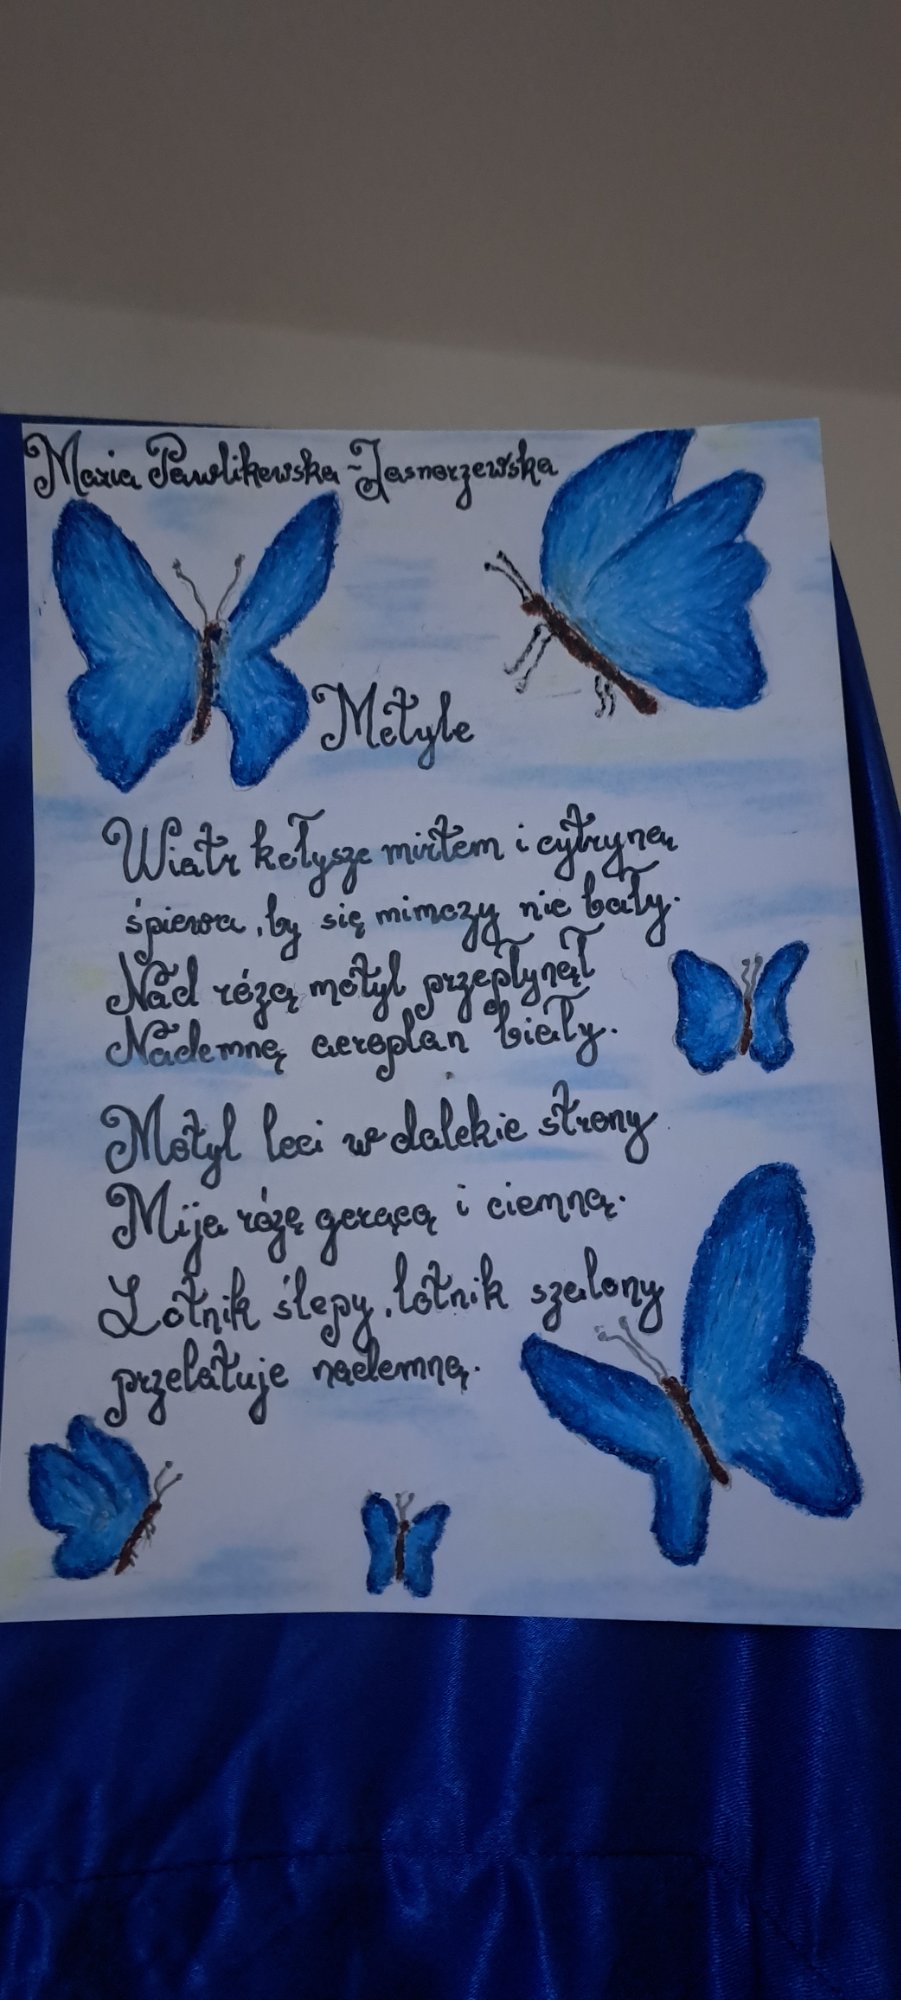 Maria Pawlikowska-Jasnorzewska
Motyle
Wiatr kołysze mirtem i cytryną
śpiewa, by się mimozy nie bały.
Nad różą motyl przepłynął
Nademną aeroplan biały.
Motyl leci w dalekie strony
Mija różę gorącą i ciemną.
Lotnik ślepy, lotnik szalony
przelatuje nademną.